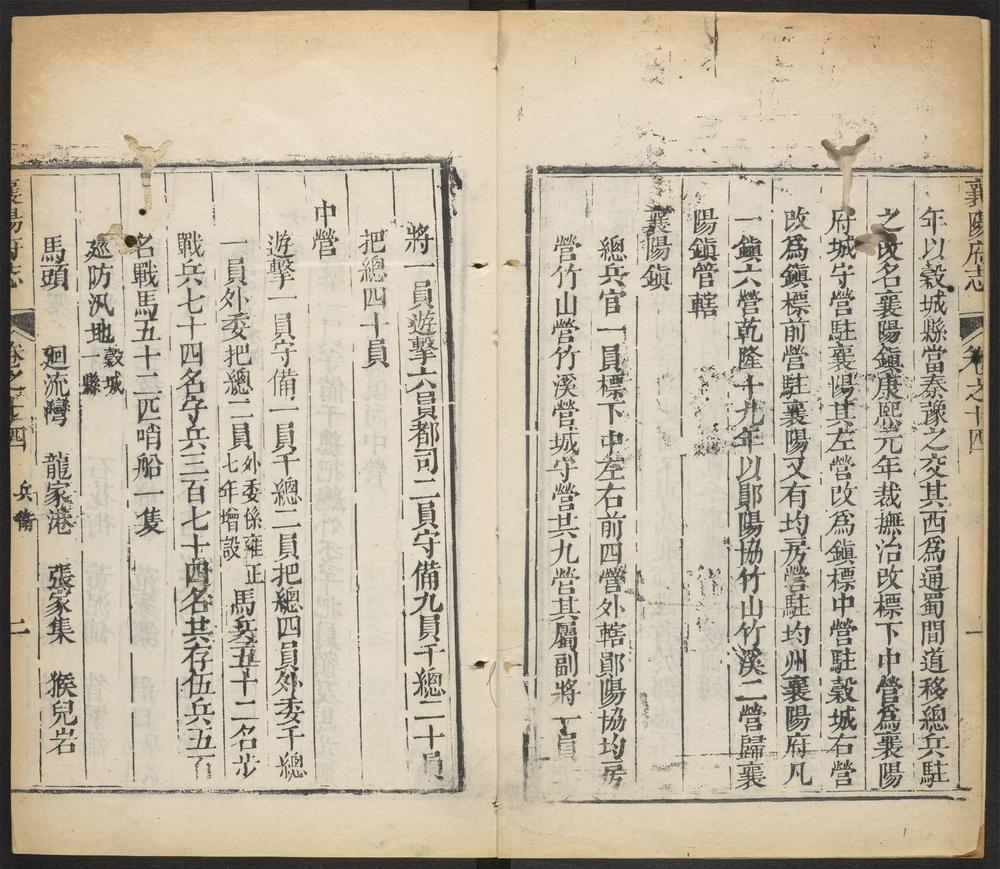 襄陽府志 卷之十四 一
年以穀城縣當秦豫之交其西為通蜀間道移總兵駐
之改名襄陽鎮康熙元年裁撫治改標下中營為襄陽
府城守營駐襄陽其左營改為鎮標中營駐穀城右營
改為鎮標前營駐襄陽又有均房營駐均州襄陽府凡
一鎮六營乾隆十九年以鄖陽協竹山竹溪二營歸襄
陽鎮管轄
襄陽鎮
總兵官一員標下中左右前四營外轄鄖陽協均房
營竹山營竹溪營城守營共九營其屬副將一員
將一員遊擊六員都司二員守備九員千總二十員
把總四十員
中營
遊擊一員守備一員千總二員把總四員外委千總
一員外委把總二員外委係雍正七年增設馬兵五十二名步
戰兵七十四名守兵三百七十四名共存伍兵五百
名戰馬五十二匹哨船一隻
廵防汛地穀城一縣
馬頭 廻流灣 龍家港 張家集 猴兒岩
襄陽府志 卷之十四 兵衛 二